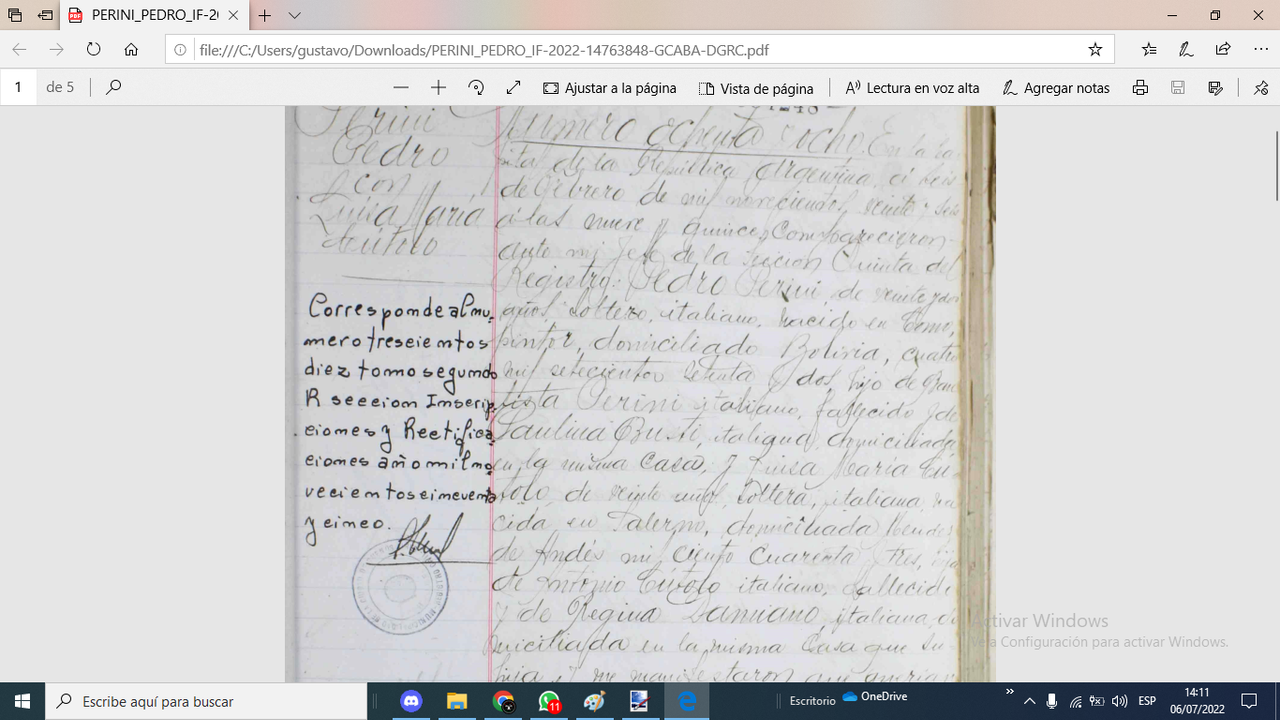 PERINI_PEDRO_IF-20
file:///C:/Users/gustavo/Downloads/PERINI_PEDRO_IF-2022-14763848-GCABA-DGRC.pdf
1 de 5
Ajustar a la página
Vista de página
Lectura en voz alta
Agregar notas
1248
Perini
Pedro
con
Luisa María
Corresponde al nu-
mero trescientos
diez tomo segundo
R seccion Inscrip-
ciones y Rectifica-
ciones año mil no-
vecientos cincuenta
y cinco.
Numero ochenta y ocho. En la Ca-
pital de la República Argentina, a seis
de Febrero de mil novecientos veinte y seis
a las nueve y quince, Comparecieron
ante mi Jefe de la Seccion Quinta del
Registro: Pedro Perini, de veinte y dos
años, soltero, italiano, nacido en Como,
pintor, domiciliado Bolivia, cuatro
mil setecientos setenta y dos, hijo de
tista Perini italiano, fallecido y de
Paulina Busti, italiana, domiciliada
en la misma Casa, y Luisa María Cú-
tolo, de veinte años, soltera, italiana, na-
cida en Palermo, domiciliada
de Andés mil ciento cuarenta y tres, hija
de Antonio Cútolo italiano, fallecido
y de Regina Damiano, italiana, do-
miciliada en la misma Casa que su
hija, y me manifestaron que querian
Activar Windows
Ve a Configuración para activar Windows.
Escribe aquí para buscar
11
Escritorio
OneDrive
»
ESP
14:11
06/07/2022